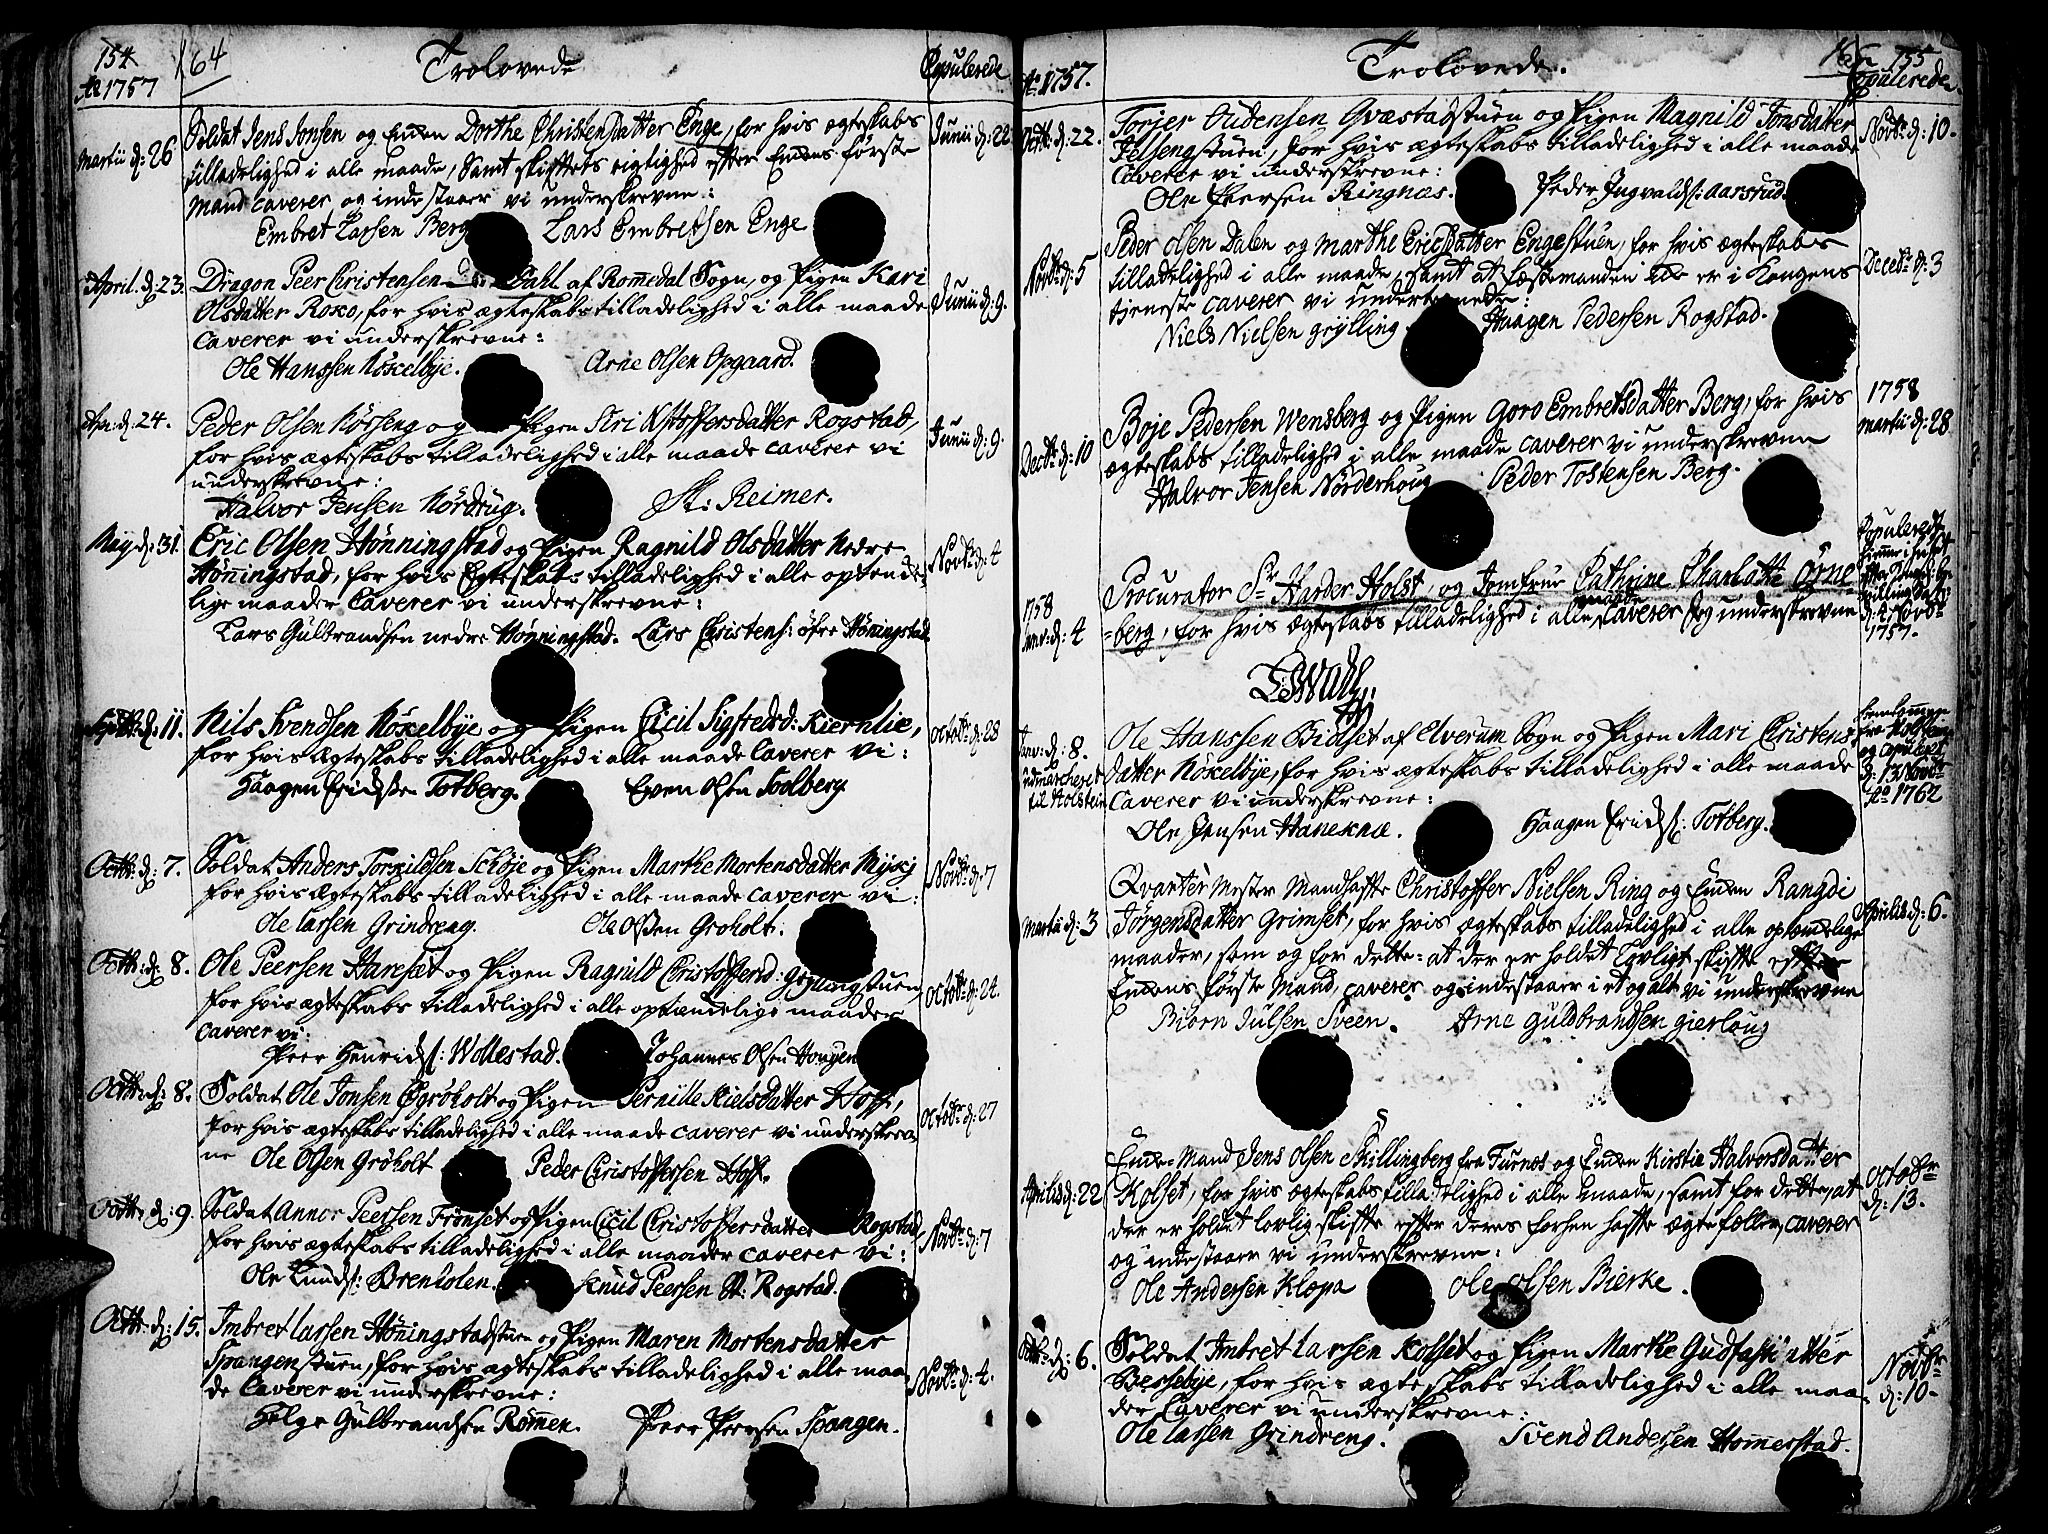 154
164
Ao 1757
Trolovede
Copulerede
Martii d: 26
Soldat Jens Jonsen og Enken Dorthe Christensdatter Enge, for hvis ægteskabs
tilladelighed i alle maade, samt skifttets rigtighed efter Enkens første
Mand caverer og inde staaer vi underskrevne:
Embret Larsen Berg
Lars Embretsen Enge
Junii d: 22
April. d: 23.
Dragon Peer Christensen Dahl af Romedal Sogn, og Pigen Kari
Olsdatter Roko, for hvis ægteskabs tilladelighed i alle maade
caverer vi underskrevne:
Ole Hanssen Nöskelbÿe.
Arne Olsen Opgaard.
Junii d: 9.
Apr. d: 24.
Peder Olsen Körseng og Pigen Siri Kstoffersdatter Rogstad,
for hvis ægteskabs tilladelighed i alle maade caverer vi
underskrevne:
Halvor Jensen Nördrug.
St: Reimer.
Junii d: 9.
Maÿ d: 31.
Eric Olsen Hönningstad og Pigen Ragnild Olsdatter Nedre
Höningstad, for hvis Egteskabs tilladelighed i alle optende-
lige maader Caverer vi underskrevne:
Lars Gulbrandsen nedre Hönningstad.
Lars Christens: öfre Höningstad
Novbr. d: 4
Septbr. d: 11.
Nils Svendsen Nöskelbÿe og Pigen Cicil Sigfredsd: Kiernlie,
for hvis ægteskabs tilladelighed i alle maade Caverer vi:
Haagen Erichsen Totberg.
Even Olsen Sodberg
octobr: d: 28
Octb: d: 7.
Soldat Anders Torkildsen Schöje og Pigen Marthe Mortensdatter Mÿkj
for hvis ægteskabs tilladelighed i alle maade caverer vi:
Ole Larsen Grindreng.
Ole Olsen Groholt.
Novbr: d: 7
Octb: d: 8.
Ole Peersen Hareset og Pigen Ragnild Christoffersd: Grÿlingstuen,
for hvis ægteskabs tilladelighed i alle optændelige maader
caverer vi:
Peer Henrichs: Wollestad.
Johannes Olsen Hougen
octobr: d: 24.
Octb: d: 8.
Soldat Ole Jonsen Gröholt og Pigen Pernille Nielsdatter Hoff,
for hvis ægteskabs tilladelighed i alle maade caverer vi underskrev-
ne
Ole Olsen Gröholt
Peder Christoffersen Hoff.
Octobr d: 27
Octb: d: 9.
Soldat Annor Peersen Frönset og Pigen Cicil Christoffersdatter Rogstad
for hvis ægteskabs tilladelighed i alle maader caverer vi:
Ole Knuds: Brenholen.
Knud Peersen Rogstad.
Novbr: d: 7
Octb: d: 15.
Imbret Larsen Höningstadstuen og Pigen Maren Mortensdatter
Spangenstuen, for hvis ægteskabs tilladelighed i alle maa-
de Caverer vi underskrevne:
Helge Gulbrandsen Romen.
Peer Peersen Spangen.
Novbr: d: 4.
Ao 1757.
Trolovede.
155
Copulerede.
Octb: d: 22.
Torjer Oudensen Qvæstadstuen og Pigen Magnild Jonsdatter
Jelsengstuen, for hvis ægteskabs tilladelighed i alle maade
Caverer vi underskrevne:
Ole Peersen Ringnæs.
Peder Ingvalds: Aarstud.
Novbr: d: 10.
Novbr: d: 5
Peder Olsen Dalen og Marthe Ericsdatter Engestuen, for hvis ægteskabs
tilladelighed i alle maade, samt at Fæstemanden er i Kongens
tjeneste caverer vi undertegnede:
Niels Nielsen grÿlling.
Haagen Pedersen Rogstad.
Decebr: d: 3
Decbr: d: 10
Boje Pedersen Wensberg og Pigen Goro Embretsdatter Berg, for hvis
ægteskabs tilladelighed i alle maade caverer vi underskrevne
Halvor Jensen Nörderhoug
Peder Tostensen Berg.
1758
martii d: 28
1758
Janv: d: 4
Procurator Sr. Harder Holst, og Jomfrue Cathrine Charlotte Örne-
-berg, for hvis Ægteskabs tilladelighed i alle maade Caverer Jeg underskrevne
Copulerede
d: 4 Novbr:
1757.
Janv: d: 8.
udmarcheret
til Holstein
Ole Hanssen Bidset af Elverum Sogn og Pigen Mari Christens-
datter Nökelbÿe, for hvis ægteskabs tilladelighed i alle maade
Caverer vi underskrevne:
Ole Jensen Haneknæ.
Haagen Erichs: Totberg.
hiemkommen
fra Holsteen
og Copuleret
d: 13 Novbr
Ao 1762
Martii d: 3
Qvarteer Mester Mandhaffte Christoffer Nielsen Ring og Enken Rangdi
Jörgensdatter Grimset, for hvis ægteskabs tilladelighed i alle optendelige
maader, som og for dette: at der er holdet Lovligt skiffte effter
Enkens første Mand, caverer og indestaaer i et og alt vi underskrevne
Biörn Julsen Sveen.
Arne Guldbrandsen gierloug
Aprilis d: 6.
Aprilis d: 22
Enke-Mand Jens Olsen Skillingberg fra Furnes og Enken Kirstie Halvorsdatter
Kolset, for hvis ægteskabs tilladelighed i alle maade, samt for dette, at
der er holdet lovlig skiffte effter deres forhen haffte ægtefæller, caverer
og indestaaer vi underskrevne:
Ole Andersen Klopa
Ole Olsen Bierke.
Octobr
d: 13.
Octbr: d: 6.
Soldat Imbret Larsen Kolset og Pigen Marthe Gudfastdatter
Bessebÿe, for hvis ægteskabs tilladelighed i alle maa-
der Caverer vi underskrevne:
Ole Larsen Grindreng.
Svend Andersen Hommerstad.
Novbr
d: 10.